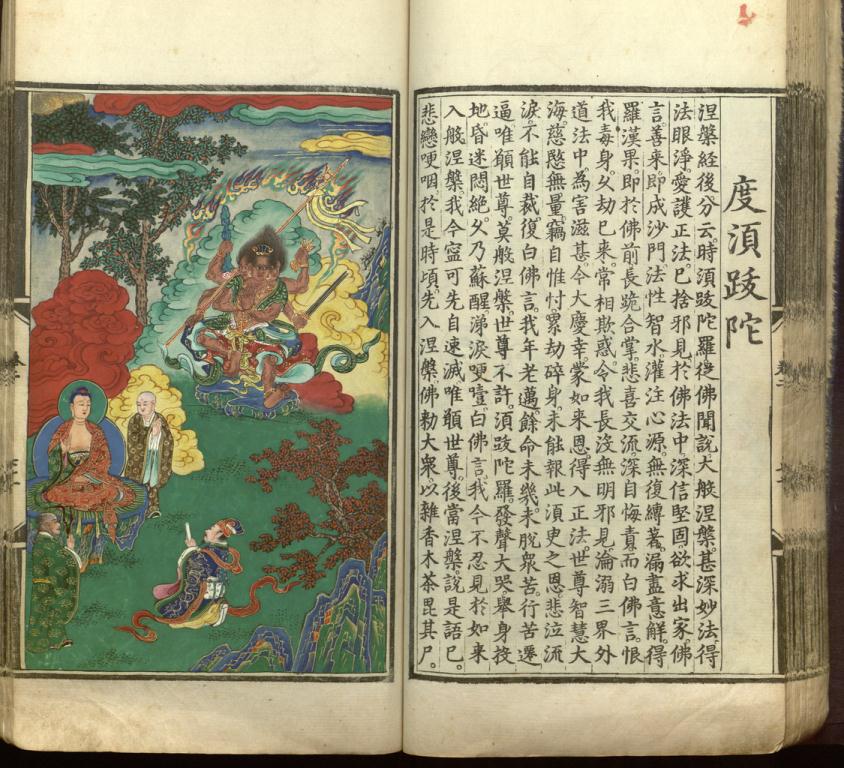 度須跋陀
涅槃經後分云。時須跋陀羅從佛聞說大般涅槃。甚深妙法。得
法眼淨。愛護正法。已捨邪見。於佛法中。深信堅固。欲求出家。佛
言善來。即成沙門。法性智水。灌注心源。無復縛著。漏盡意解。得
羅漢果。即於佛前。長跪合掌。悲喜交流。深自悔責。而白佛言。恨
我毒身。久劫已來。常相欺惑。令我長沒無明邪見。淪溺三界外
道法中。為害滋甚。今大慶幸。蒙如來恩。得入正法。世尊智慧大
海。慈愍無量。竊自惟忖。累劫碎身。未能報此須臾之恩。悲泣流
淚。不能自裁。復白佛言。我年老邁。餘命未幾。未脫眾苦。行苦遷
逼。唯願世尊。莫般涅槃。世尊不許。須跋陀羅。發聲大哭。舉身投
地。昏迷悶絕。久乃蘇醒。涕淚哽噎。白佛言。我今不忍見於如來
入般涅槃。我今寧可先自速滅。唯願世尊。後當涅槃。說是語已。
悲戀哽咽。於是時頃。先入涅槃。佛勑大眾。以雜香木茶毘其尸。